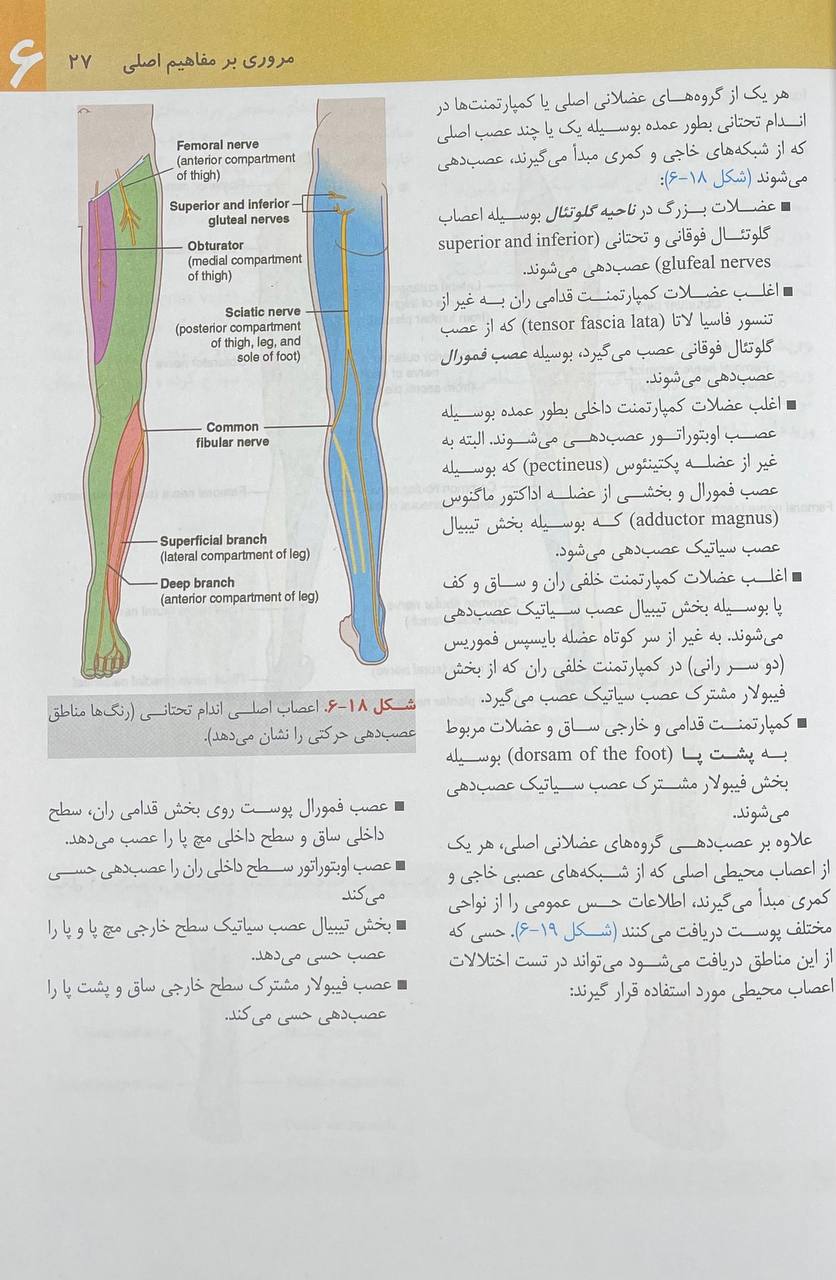 ۶
مروری بر مفاهیم اصلی ۲۷
هر یک از گروه‌های عضلانی اصلی یا کمپارتمنت‌ها در
اندام تحتانی بطور عمده بوسیله یک یا چند عصب اصلی
که از شبکه‌های خاجی و کمری مبدأ می‌گیرند، عصب‌دهی
می‌شوند (شکل ۱۸-۶):
■ عضلات بزرگ در ناحیه گلوتئال بوسیله اعصاب
گلوتئال فوقانی و تحتانی (superior and inferior
glufeal nerves) عصب‌دهی می‌شوند.
■ اغلب عضلات کمپارتمنت قدامی ران به غیر از
تنسور فاسیا لاتا (tensor fascia lata) که از عصب
گلوتئال فوقانی عصب می‌گیرد، بوسیله عصب فمورال
عصب‌دهی می‌شوند.
■ اغلب عضلات کمپارتمنت داخلی بطور عمده بوسیله
عصب اوبتوراتور عصب‌دهی می‌شوند. البته به
غیر از عضله پکتینئوس (pectineus) که بوسیله
عصب فمورال و بخشی از عضله اداکتور ماگنوس
(adductor magnus) که بوسیله بخش تیبیال
عصب سیاتیک عصب‌دهی می‌شود.
■ اغلب عضلات کمپارتمنت خلفی ران و ساق و کف
پا بوسیله بخش تیبیال عصب سیاتیک عصب‌دهی
می‌شوند. به غیر از سر کوتاه عضله بایسپس فموریس
(دو سر رانی) در کمپارتمنت خلفی ران که از بخش
فیبولار مشترک عصب سیاتیک عصب می‌گیرد.
■ کمپارتمنت قدامی و خارجی ساق و عضلات مربوط
به پشت پا (dorsam of the foot) بوسیله
بخش فیبولار مشترک عصب سیاتیک عصب‌دهی
می‌شوند.
علاوه بر عصب‌دهی گروه‌های عضلانی اصلی، هر یک
از اعصاب محیطی اصلی که از شبکه‌های عصبی خاجی و
کمری مبدأ می‌گیرند، اطلاعات حس عمومی را از نواحی
مختلف پوست دریافت می‌کنند (شکل ۱۹-۶). حسی که
از این مناطق دریافت می‌شود می‌تواند در تست اختلالات
اعصاب محیطی مورد استفاده قرار گیرند:
Femoral nerve
(anterior compartment
of thigh)
Superior and inferior
gluteal nerves
Obturator
(medial compartment
of thigh)
Sciatic nerve
(posterior compartment
of thigh, leg, and
sole of foot)
Common
fibular nerve
Superficial branch
(lateral compartment of leg)
Deep branch
(anterior compartment of leg)
شکل ۱۸-۶. اعصاب اصلی اندام تحتانی (رنگ‌ها مناطق
عصب‌دهی حرکتی را نشان می‌دهد).
■ عصب فمورال پوست روی بخش قدامی ران، سطح
داخلی ساق و سطح داخلی مچ پا را عصب می‌دهد.
■ عصب اوبتوراتور سطح داخلی ران را عصب‌دهی حسی
می‌کند
■ بخش تیبیال عصب سیاتیک سطح خارجی مچ پا و پا را
عصب حسی می‌دهد.
■ عصب فیبولار مشترک سطح خارجی ساق و پشت پا را
عصب‌دهی حسی می‌کند.